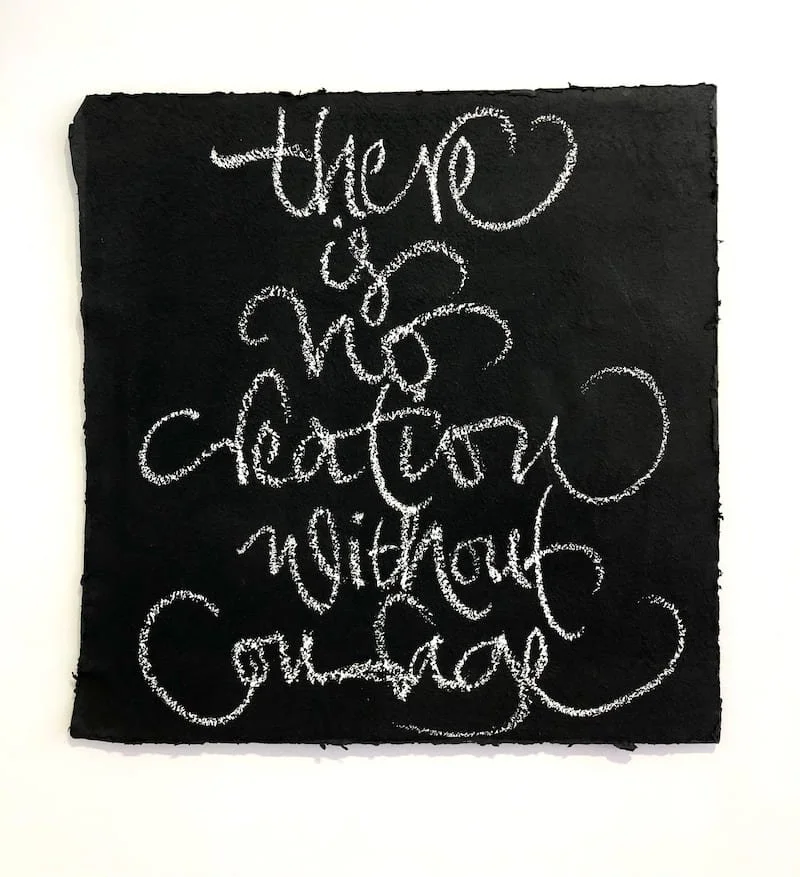 there
is
no
creation
without
courage